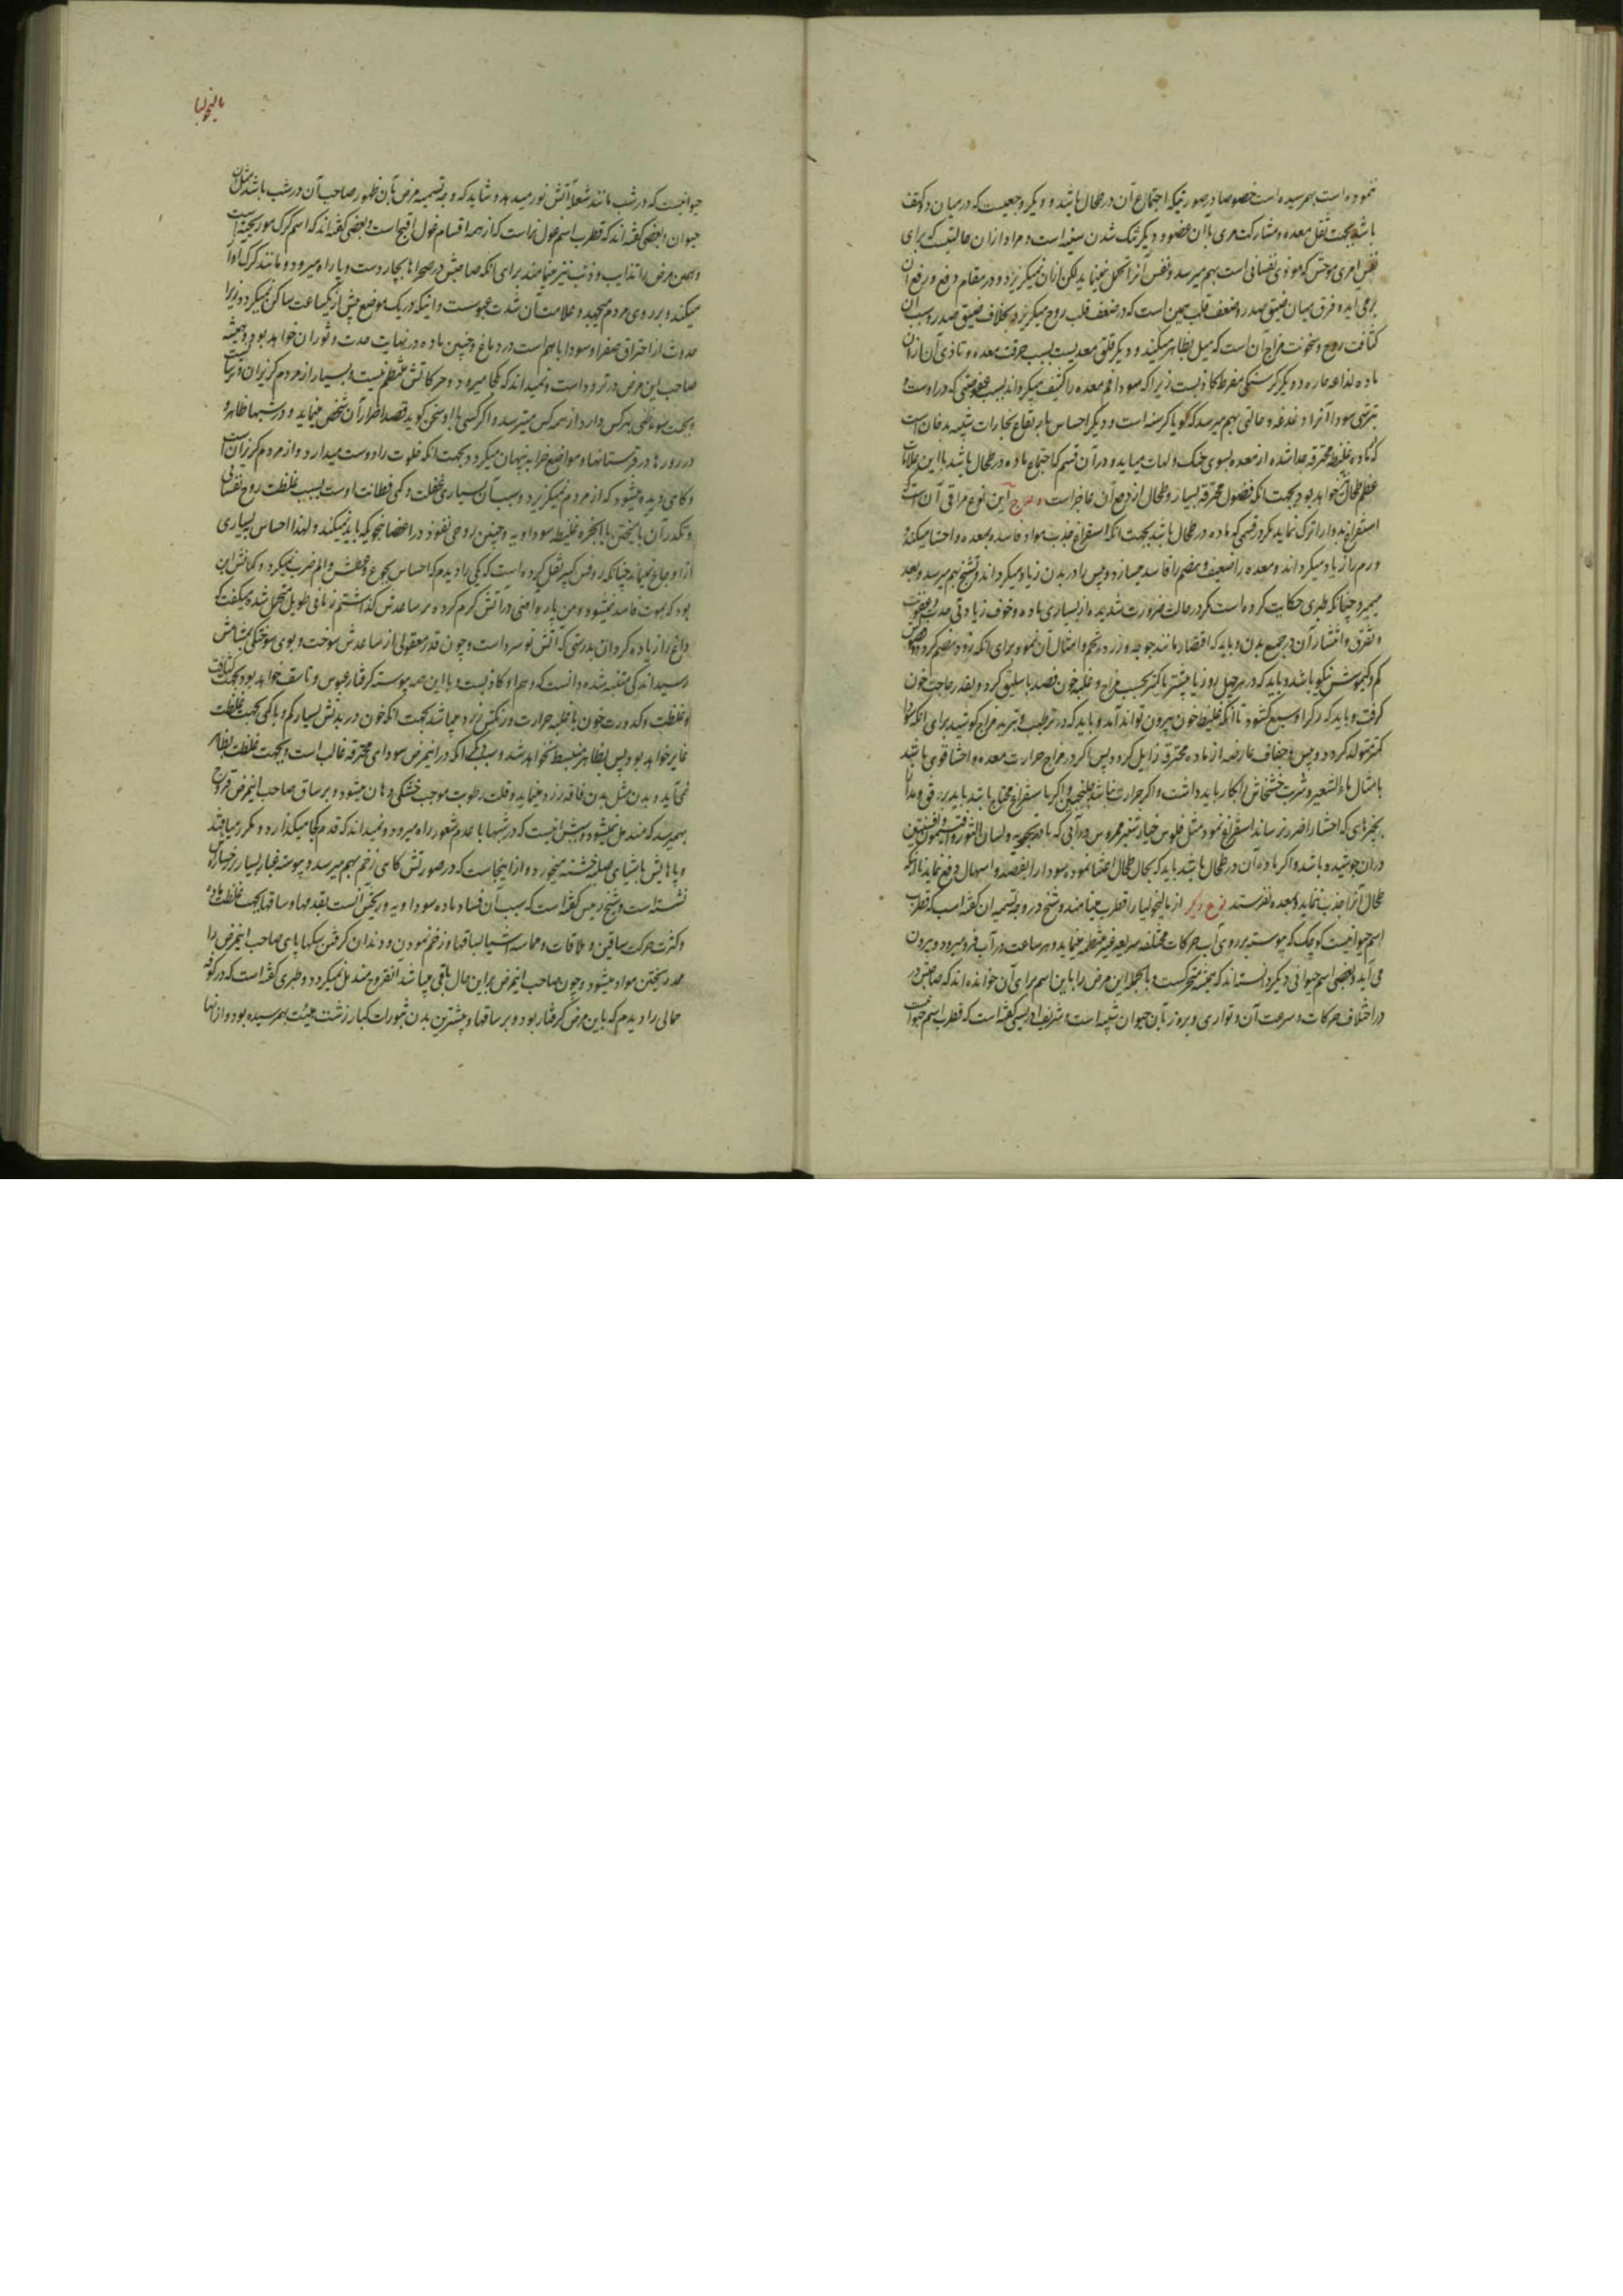 نموده است بهمرسیده است خصوصا در صورتیکه اجتماع آن در طحال باشد و دیگر وجعیست که در میان دو کتف
باشد بجهت ثقل معده و مشارکت مری با آن عضو و دیگر تنک شدن سینه است و مراد از آن حالتیست که برای
نفس امری موحش که موذی نفسانی است بهم میرسد و نفس آنرا تحمل مینماید لیکن از آن نمیگریزد و در مقام دفع و رفع آن
برمی آید و فرق میان ضیق صدر و ضعف قلب همین است که در ضعف قلب روح میگریزد بخلاف ضیق صدر و سبب آن
کثافت روح و سخونت مزاج آن است که میل بظاهر میکند و دیگر قلق معدیست بسبب حرقت معده و تاذی آن از آن
ماده لذاعه حاره و دیگر کرسنگی مفرط کاذبست زیرا که سودا فم معده را کثیف میگرداند بسبب عفوصتی که در اوست و
بترشی سودا آنرا دغدغه و حالتی بهم میرسد که گویا کرسنه است و دیگر احساس بارتفاع بخارات شبیه بدخان است
که ماده غلیظ محترقه جدا شده از معده بسوی حنک و لهات میاید و در آن قسم که اجتماع ماده در طحال باشد با این علامات
عظم طحال خواهد بود بجهت انکه فضول محترقه بسیار و طحال از دفع آن عاجز است و علاج این نوع مراقی آن است که
استفراغ بدوا را ترک نماید مگر در قسمی که ماده در طحال باشد بجهت انکه استفراغ جذب مواد فاسده بمعده و احشا میکند و
ورم را زیاد میگرداند و معده را ضعیف و هضم را فاسد میسازد و پس را در بدن زیاد میگرداند و تشنج بهم میرسد و بعد
میمیرد چنانکه طبری حکایت کرده است مگر در حالت ضرورت شدیده از بسیاری ماده و خوف زیادتی حدت و عفونت
و تفرق و انتشار آن در جمیع بدن و باید که اقتصار بمانند جوجه و زرده تخم و امثال آن نمود برای انکه زود هضم کردد و
کم و کیموسش نیکو باشد و باید که در هر چهل روز یا بیشتر یا کمتر بحسب مزاج و غلبه خون فصد باسلیق کرد و بقدر حاجت خون
کرفت و باید که رک را وسیع کشود تا آنکه غلیظ خون بیرون تواند آمد و باید که در ترطیب و تبرید مزاج کوشید برای انکه سودا
کمتر متولد کردد و یبس و جفاف عارضه از ماده محترقه زایل کردد پس اگر در مزاج حرارت معده و احشا قوی باشد
بامثال ماء الشعیر و شربت خشخاش بکار باید داشت و اگر حرارت نباشد و اگر باستفراغ محتاج باشد باید برفق و مدارا
بچیزهای که احشا را ضرر نرساند استفراغ نمود مثل فلوس خیارشنبر ممروس در آبی که بادرنجبویه و لسان الثور و افتیمون
در آن جوشیده باشد و اگر ماده آن در طحال باشد باید که بحال طحال اعتنا نموده سودا را بفصد و اسهال دفع نماید تا آنکه
طحال آنرا جذب نماید و بمعده نفرستد نوع دیگر از مالیخولیا را قطرب مینامند و شیخ در وجه تسمیه آن گفته است که قطرب
اسم حیوانیست کوچک که پیوسته بر روی آب حرکات مختلفه سریعه غیر منتظمه مینماید و هر ساعت در آب فرو میرود و بیرون
می آید و بعضی اسم حیوانی دیگر دانسته اند که همیشه متحرکست و بالجمله این مرض را باین اسم برای آن خوانده اند که صاحبش در
در اختلاف حرکات و سرعت آن و تواری و بروز بآن حیوان شبیه است و شریف ادریسی گفته است که قطرب اسم حیوان
مالیخولیا
حیوانیست که در شب مانند شعله آتش نور میدهد و شاید که وجه تسمیه مرض بآن ظهور صاحب آن در شب باشد مثل
حیوان و بعضی گفته اند که قطرب اسم غول نر است که از همه اقسام غول اقبح است و بعضی گفته اند که اسم گرگ مو ریخته است
و همین مرض را تذایب و ذئب نیز مینامند برای انکه صاحبش در صحراها بچار دست و پا راه میرود و مانند گرگ آواز
میکند و بر روی مردم میجهد و علامت آن شدت عبوست و اینکه در یک موضع بیش از یکساعت ساکن نمیگردد زیرا
حدوث از احتراق صفرا و سودا باهم است در دماغ و چنین ماده در نهایت حدت و ثوران خواهد بود و همیشه
صاحب این مرض در تردد است و نمیداند که بکجا میرود و حرکاتش منتظم نیست و بسیار از مردم گریزان و ترسان
و بجهت سوء ظنی بهر کس دارد از همه کس میترسد و اگر کسی با او سخن گوید قصد اضرار آن شخص مینماید و در شبها ظاهر و
در روزها در قبرستانها و مواضع خرابه پنهان میگردد بجهت انکه خلوت را دوست میدارد و از مردم گریزان است
و کاهی دیده میشود که از مردم نمیگریزد و سبب آن بسیاری غفلت و کمی فطانت اوست بسبب غلظت روح نفسانی
و تکدر آن بآمیختن با ابخره غلیظه سوداویه و چنین روحی نفوذ در اعضا بنحویکه باید نمیکند و لهذا احساس بسیاری
از اوجاع نمینماید چنانکه روفس کبیر نقل کرده است که یکی را دیدم که احساس بجوع و عطش و الم ضرب نمیکرد و گمانش این
بود که بموت فاسد نمیشود و من پاره آهنی در آتش گرم کرده بر ساعدش گذاشتم زمانی طویل متحمل شده میگفت که
داغ را زیاده گردان بدرستی که آتش تو سرد است و چون قدر معقولی از ساعدش سوخت و بوی سوختگی بمشامش
رسید اندکی متنبه شده دانست که و با این همه پیوسته گرفتار عبوس و تاسف خواهد بود بجهت کثافت
و غلظت و کدورت خون با غلبه حرارت و رنگش زرد میباشد بجهت انکه خون در بدنش بسیار کم و با کمی بجهت غلظت
غایر خواهد بود پس بظاهر منبسط نخواهد شد و سبب انکه در این مرض سودای محترقه غالب است و بجهت غلظت بظاهر
نمیآید و بدن مثل بدن فاقه زرد مینماید و قلت رطوبت موجب خشکی دهان میشود و بر ساق صاحب این مرض قروح
بهم میرسد که مندمل نمیشود و سببش اینست که در شبها با عدم شعور راه میرود و نمیداند که قدم کجا میگذارد و مکرر میافتد
و پاهایش باشیای صلبه خشنه میخورد و از اینجاست که در صورتش کاهی زخم بهم میرسد و پیوسته غبار بسیار بر رخسارش
نشسته است و شیخ رئیس گفته است که سبب آن فساد ماده سوداویه و ریختن آنست بقدمها و ساقها بجهت غلظت ماده
و کثرت حرکت ساقین و ملاقات و مماسه اشیا بساقها و زخم نمودن و دندان گرفتن سگها پاهای صاحب این مرض را
ممد ریختن مواد میشود و چون صاحب این مرض بر این حال باقی میباشد آن قروح مندمل نمیگردد و طبری گفته است که در کوفه
حمالی را دیدم که باین مرض گرفتار بود و بر ساقها و بیشترین بدن ثبورات کبار زشت هیئت بهمرسیده بود و از آنها